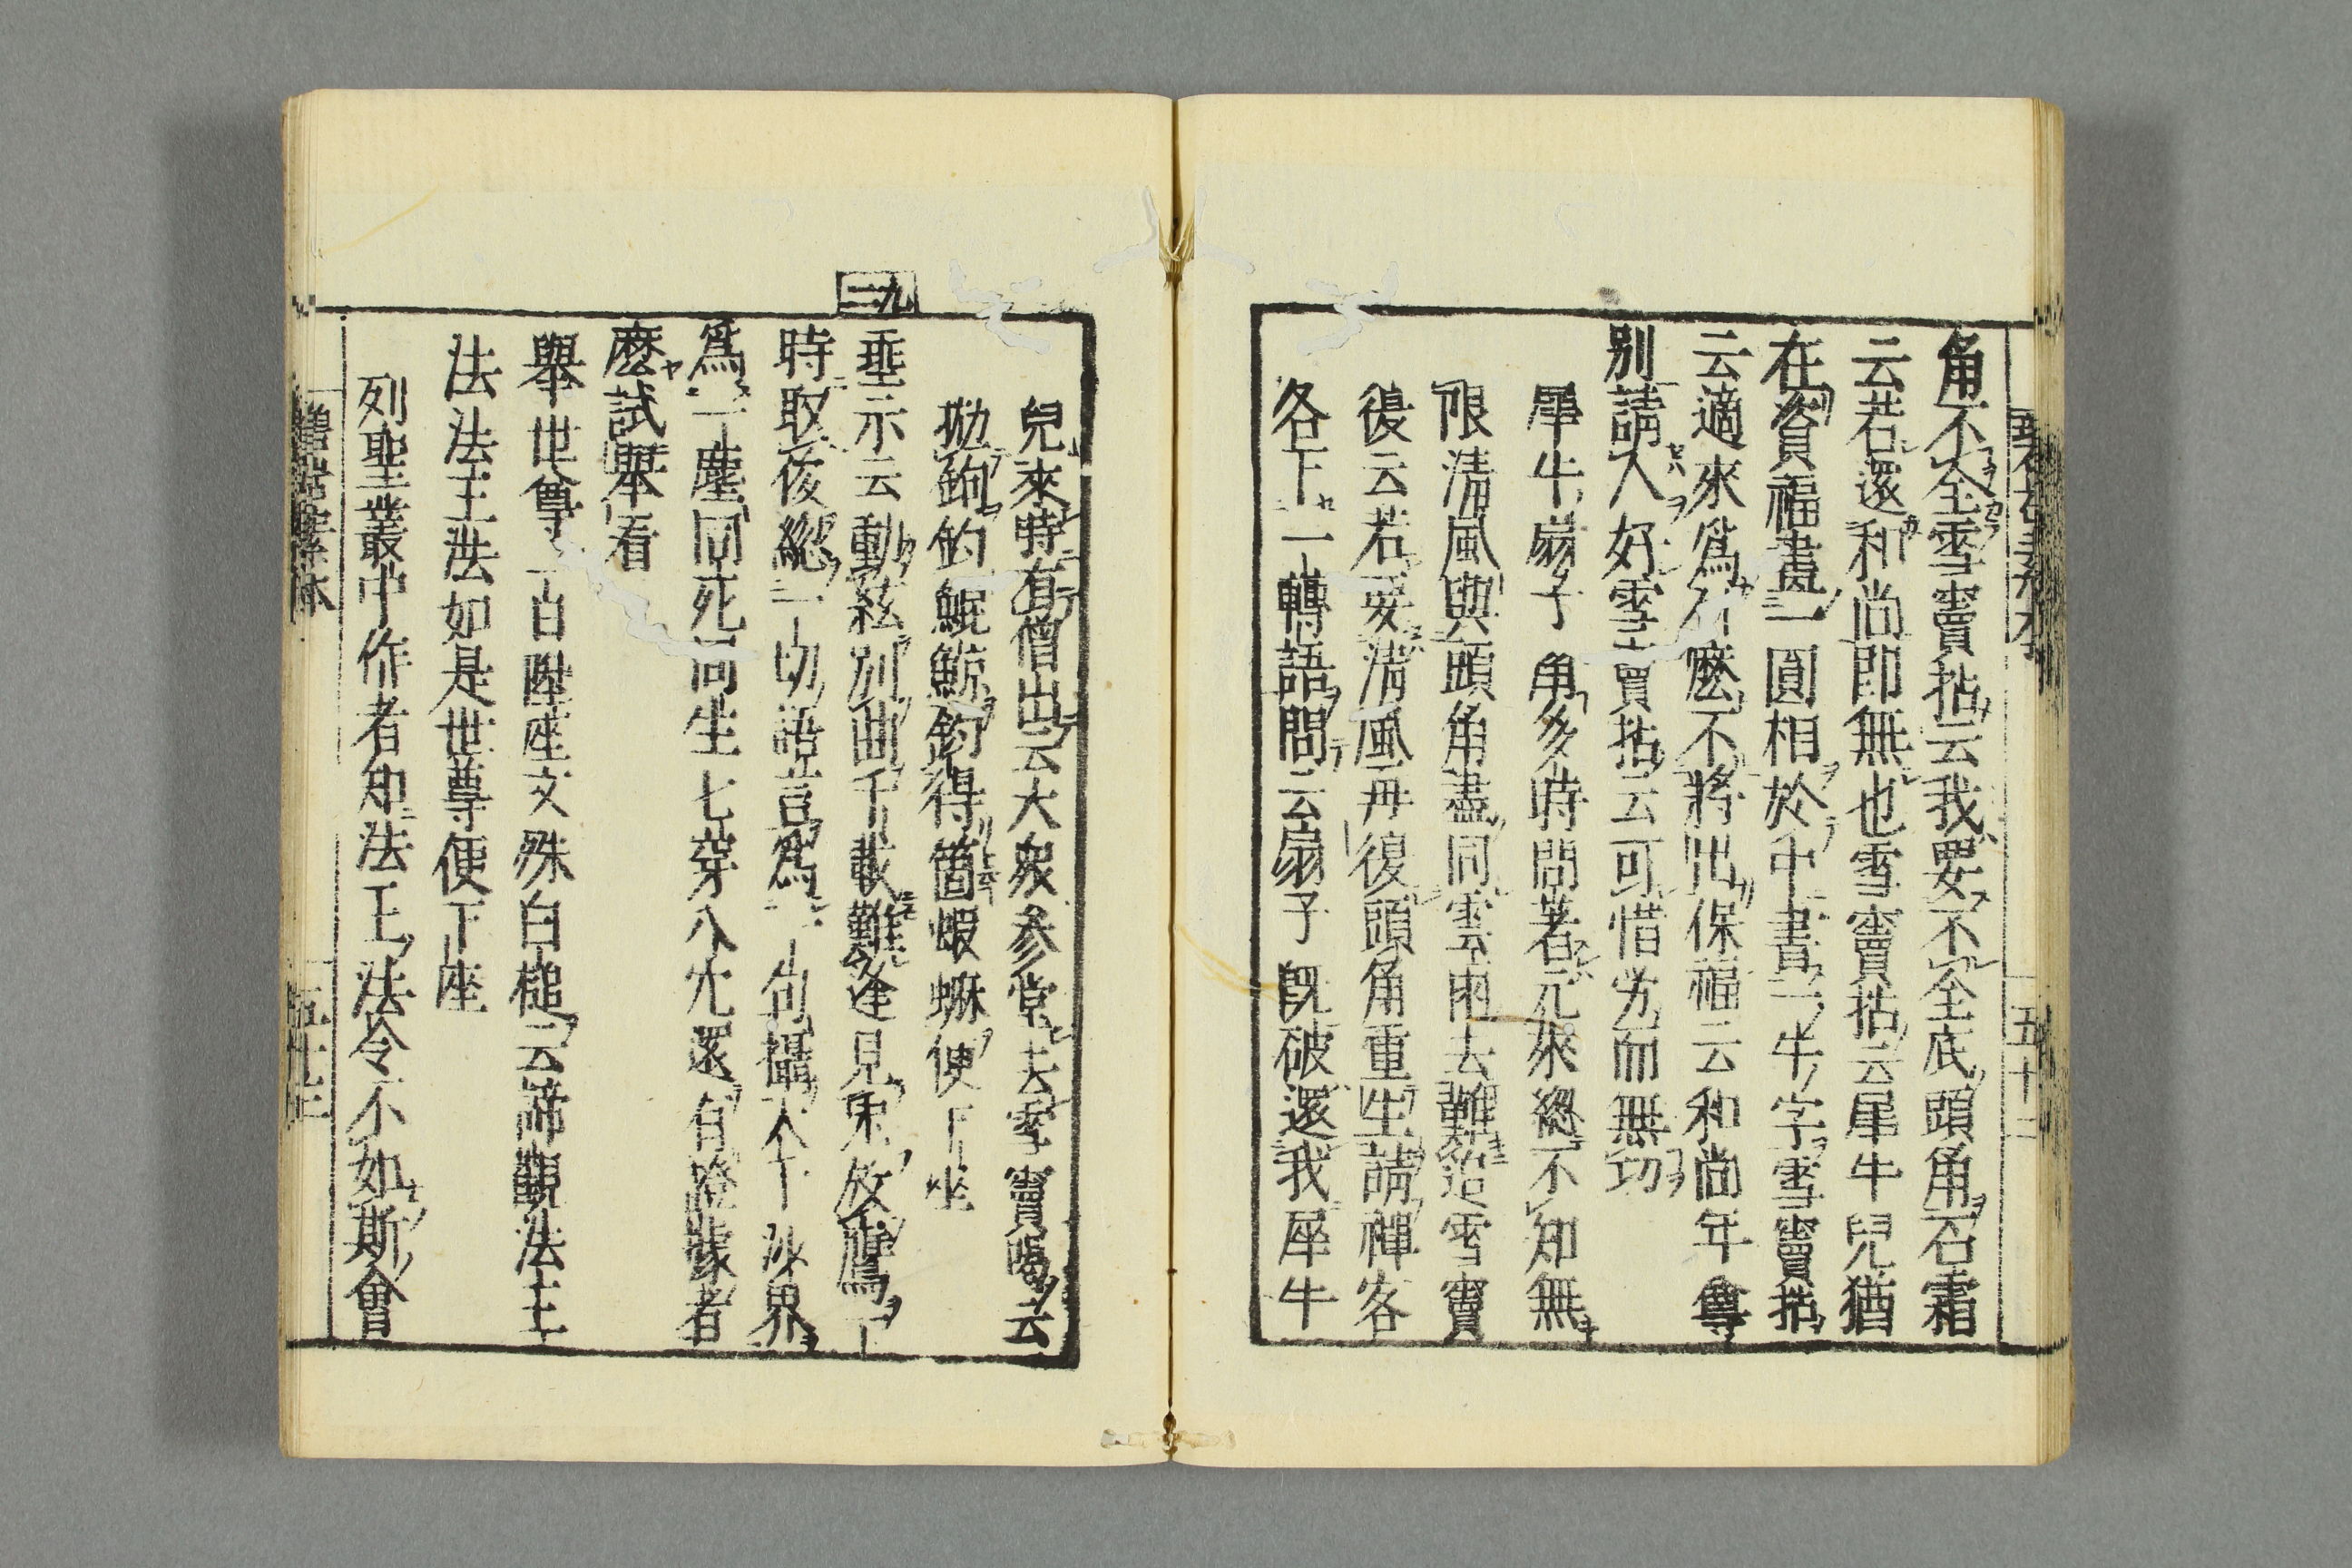 角不全雪竇拈云我要不全底頭角石霜
云若還和尚即無也雪竇拈云犀牛兒猶
在資福畫一圓相於中書一牛字雪竇拈
云適來爲什麼不將出保福云和尚年尊
別請人好雪竇拈云可惜労而無功
犀牛扇子角多時問著元來總不知無
限淸風與頭角盡同雲雨去難追雪竇
復云若要淸風再復頭角重生請禪客
各下一轉語問云扇子既破還我犀牛
五十二
兒來時有僧出云大衆參堂去雪竇喝云
抛鉤釣鯤鯨釣得箇蝦蟆便下坐
九二
垂示云動絃別曲千載難逢見兎放鷹一
時取俊總一切語言爲一句攝大千沙界
爲一塵同死同生七穿八穴還有證據者
麼試擧看
擧世尊一日陞座文殊白槌云諦觀法王
法法王法如是世尊便下座
列聖叢中作者知法王法令不如斯會
五十三